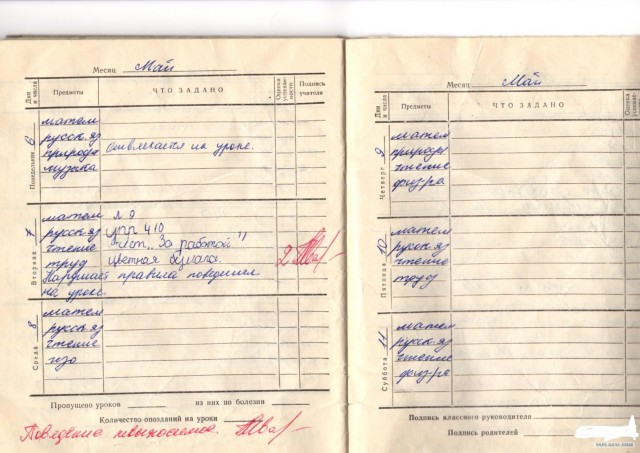 Месяц Май
Дни и числа
Предметы
ЧТО ЗАДАНО
Оценка успевае- мости
Подпись учителя
Понедельник 6
матем
русск.яз
природа Отвлекается на уроке.
музыка
Вторник 7
матем № 9
русск.яз упр 410
чтение "За работой"
труд цветная бумага. 2
Нарушает правила поведения
на уроке.
Среда 8
матем
русск.яз
чтение
изо
Пропущено уроков из них по болезни
Количество опозданий на уроки
Поведение невыносимое.
Месяц Май
Дни и числа
Предметы
ЧТО ЗАДАНО
Оценка успевае-
Четверг 9
матем
природа
чтение
физ-ра
Пятница 10
матем
русск.яз
чтение
труд
Суббота 11
матем
русск.яз
чтение
физ-ра
Подпись классного руководителя
Подпись родителей